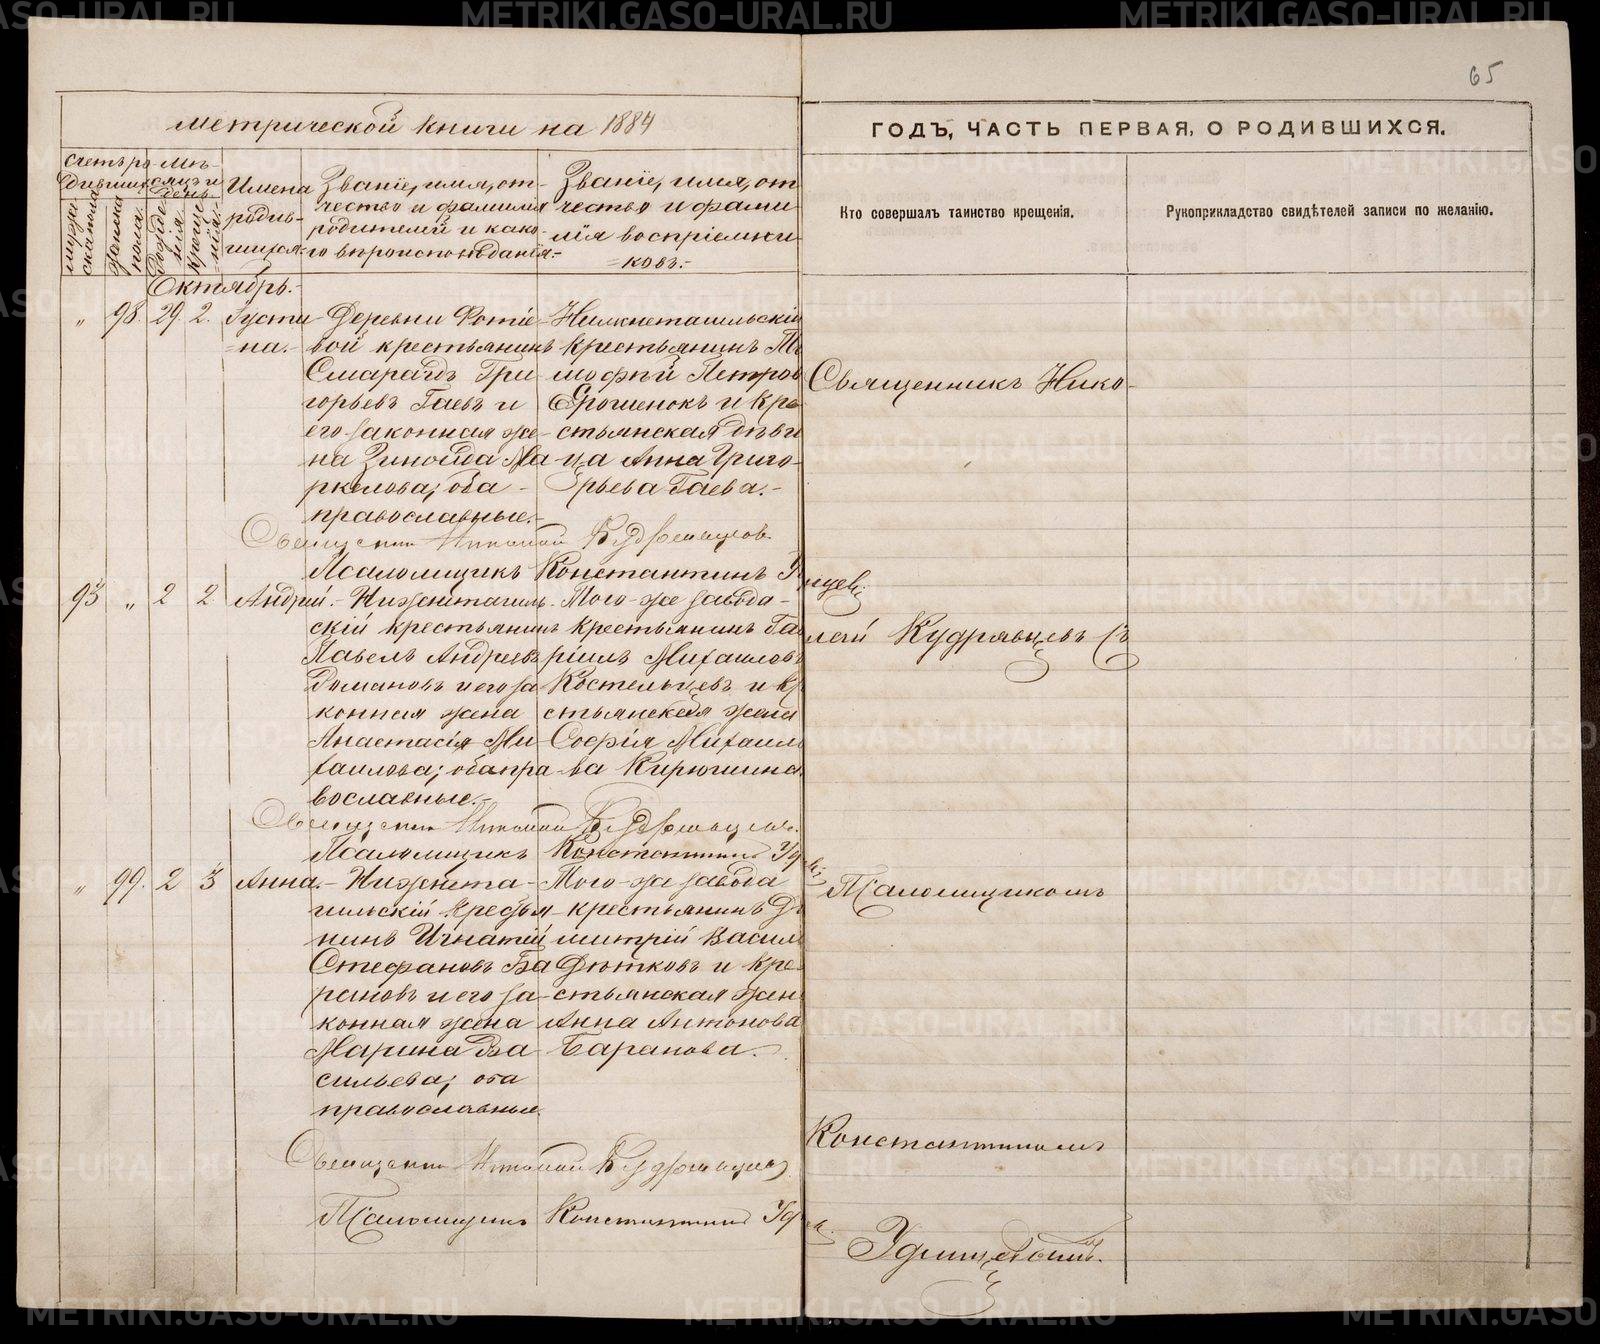 65
метрической книги на 1884
ГОДЪ, ЧАСТЬ ПЕРВАЯ, О РОДИВШИХСЯ.
Счетъ родившихся
мужеска пола
женска пола
Мѣсяцъ и день
рожденія
крещенія
Имена родившихся.
Званіе, имя, от-
чество и фамилія
родителей и како-
го вѣроисповѣданія.
Званіе, имя, от
чество и фами
лія воспріемни
ковъ.
Кто совершалъ таинство крещенія.
Рукоприкладство свидѣтелей записи по желанію.
Октябрь.
„ 98. 29. 2. Густи-
на.
Деревни Фотіе-
вой крестьянинъ
Смарагдъ Гри-
горьевъ Гаевъ и
его законная же-
на Зиноида Ма
ркелова; оба
православные.
Нижнетагильскій
крестьянинъ Ти
мофѣй Петров
Ерошенокъ и кре
стьянская дѣви
ца Анна Григо-
рьева Гаева.
Священникъ Николай Кудрявцевъ
Псаломщикъ Константинъ Удинцевъ
93 „ 2 2 Андрей.
Нижнетагиль-
скій крестьянинъ
Павелъ Андреевъ
Романовъ и его за
конная жена
Анастасія Ми-
хаилова; оба пра-
вославные.
Того-же завода
крестьянинъ Гав
ріилъ Михаиловъ
Костельцевъ и кр
стьянская жена
Софія Михаил
ва Кирюшина
Священникъ Николай Кудрявцевъ.
Псаломщикъ Константинъ Удинцевъ
„ 99. 2 3 Анна.
Нижнета-
гильскій крестья-
нинъ Игнатій
Стефановъ Ба
рановъ и его за-
конная жена
Марина Ва
сильева; оба
православные.
Того-же завода
крестьянинъ Ди
митрій Васил
Фѣтковъ и кре-
стьянская жен
Анна Антонова
Баранова.
Священникъ Николай Кудрявцевъ
Псаломщикъ Константинъ Удинцевъ
Священникъ Нико-
лай Кудрявцевъ съ
Псаломщикомъ
Константиномъ
Удинцевымъ.
METRIKI.GASO-URAL.RU